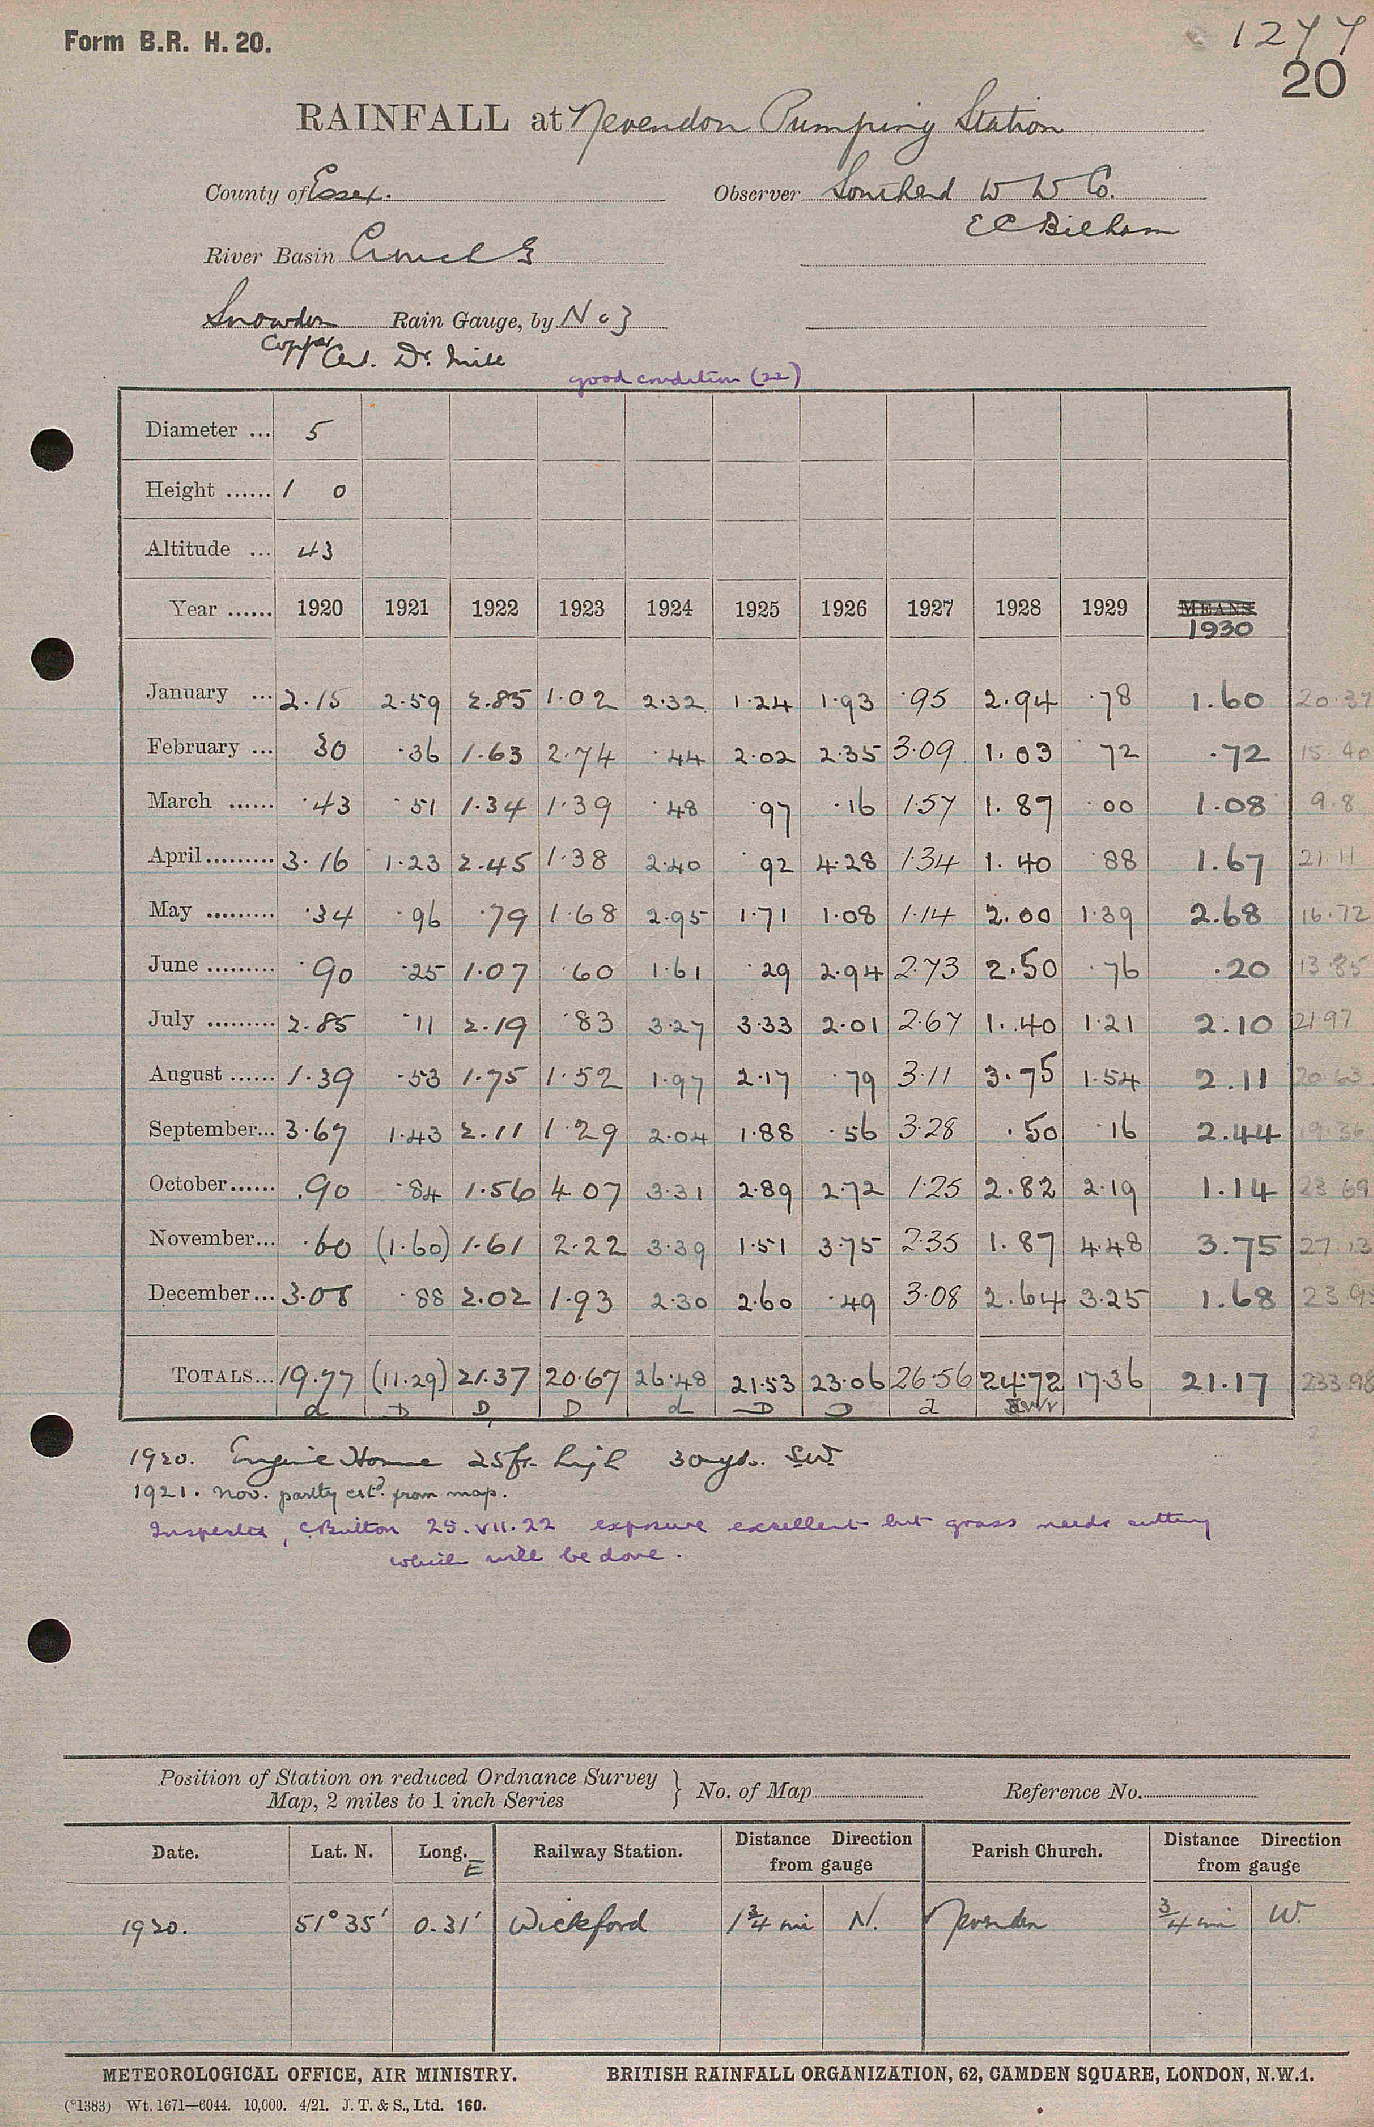 Form B.R. H. 20.
1277
20
RAINFALL at Nevendon Pumping Station
County of Essex. Observer Southend W W Co.
E C Bilham
River Basin Crouch E
Snowdon Rain Gauge, by No 3
Copper Cert. Dr. Mill
good condition (22)
Diameter ... 5
Height ...... 1 0
Altitude ... 43
Year ...... 1920 1921 1922 1923 1924 1925 1926 1927 1928 1929 MEANS
1930
January ... 2.15 2.59 2.85 1.02 2.32 1.24 1.93 .95 2.94 .78 1.60 20.37
February ... 30 .36 1.63 2.74 .44 2.02 2.35 3.09 1.03 72 .72 15.40
March ...... .43 .51 1.34 1.39 .48 .97 .16 1.57 1.87 .00 1.08 9.8
April ......... 3.16 1.23 2.45 1.38 2.40 92 4.28 1.34 1.40 .88 1.67 21.11
May ......... .34 .96 .79 1.68 2.95 1.71 1.08 1.14 2.00 1.39 2.68 16.72
June ......... .90 .25 1.07 .60 1.61 .29 2.94 2.73 2.50 .76 .20 13.85
July ......... 2.85 .11 2.19 .83 3.27 3.33 2.01 2.67 1.40 1.21 2.10 21 97
August ...... 1.39 .53 1.75 1.52 1.97 2.17 .79 3.11 3.75 1.54 2.11 20.63
September... 3.67 1.43 2.11 1.29 2.04 1.88 .56 3.28 .50 .16 2.44 19.36
October...... .90 .84 1.56 4 07 3.31 2.89 2.72 1.25 2.82 2.19 1.14 23 69
November... .60 (1.60) 1.61 2.22 3.39 1.51 3.75 2.35 1.87 4.48 3.75 27.13
December... 3.08 .88 2.02 1.93 2.30 2.60 .49 3.08 2.64 3.25 1.68 23.95
TOTALS... 19.77 (11.29) 21.37 20.67 26.48 21.53 23.06 26.56 24.72 17.36 21.17 233.98
d D D D d D D d
1920. Engine House 25 ft. high 30 yds. SW.
1921. Nov. partly estd. from map.
Inspected, C Button 25.VII.22 exposure excellent but grass needs cutting
which will be done.
Position of Station on reduced Ordnance Survey
Map, 2 miles to 1 inch Series } No. of Map Reference No.
Date. Lat. N. Long. E Railway Station. Distance Direction from gauge Parish Church. Distance Direction from gauge
1920. 51° 35' 0.31' Wickford 1 3/4 mi N. Nevendon 3/4 mi W.
METEOROLOGICAL OFFICE, AIR MINISTRY. BRITISH RAINFALL ORGANIZATION, 62, CAMDEN SQUARE, LONDON, N.W.1.
(*1383) Wt. 1671—6044. 10,000. 4/21. J. T. & S., Ltd. 160.